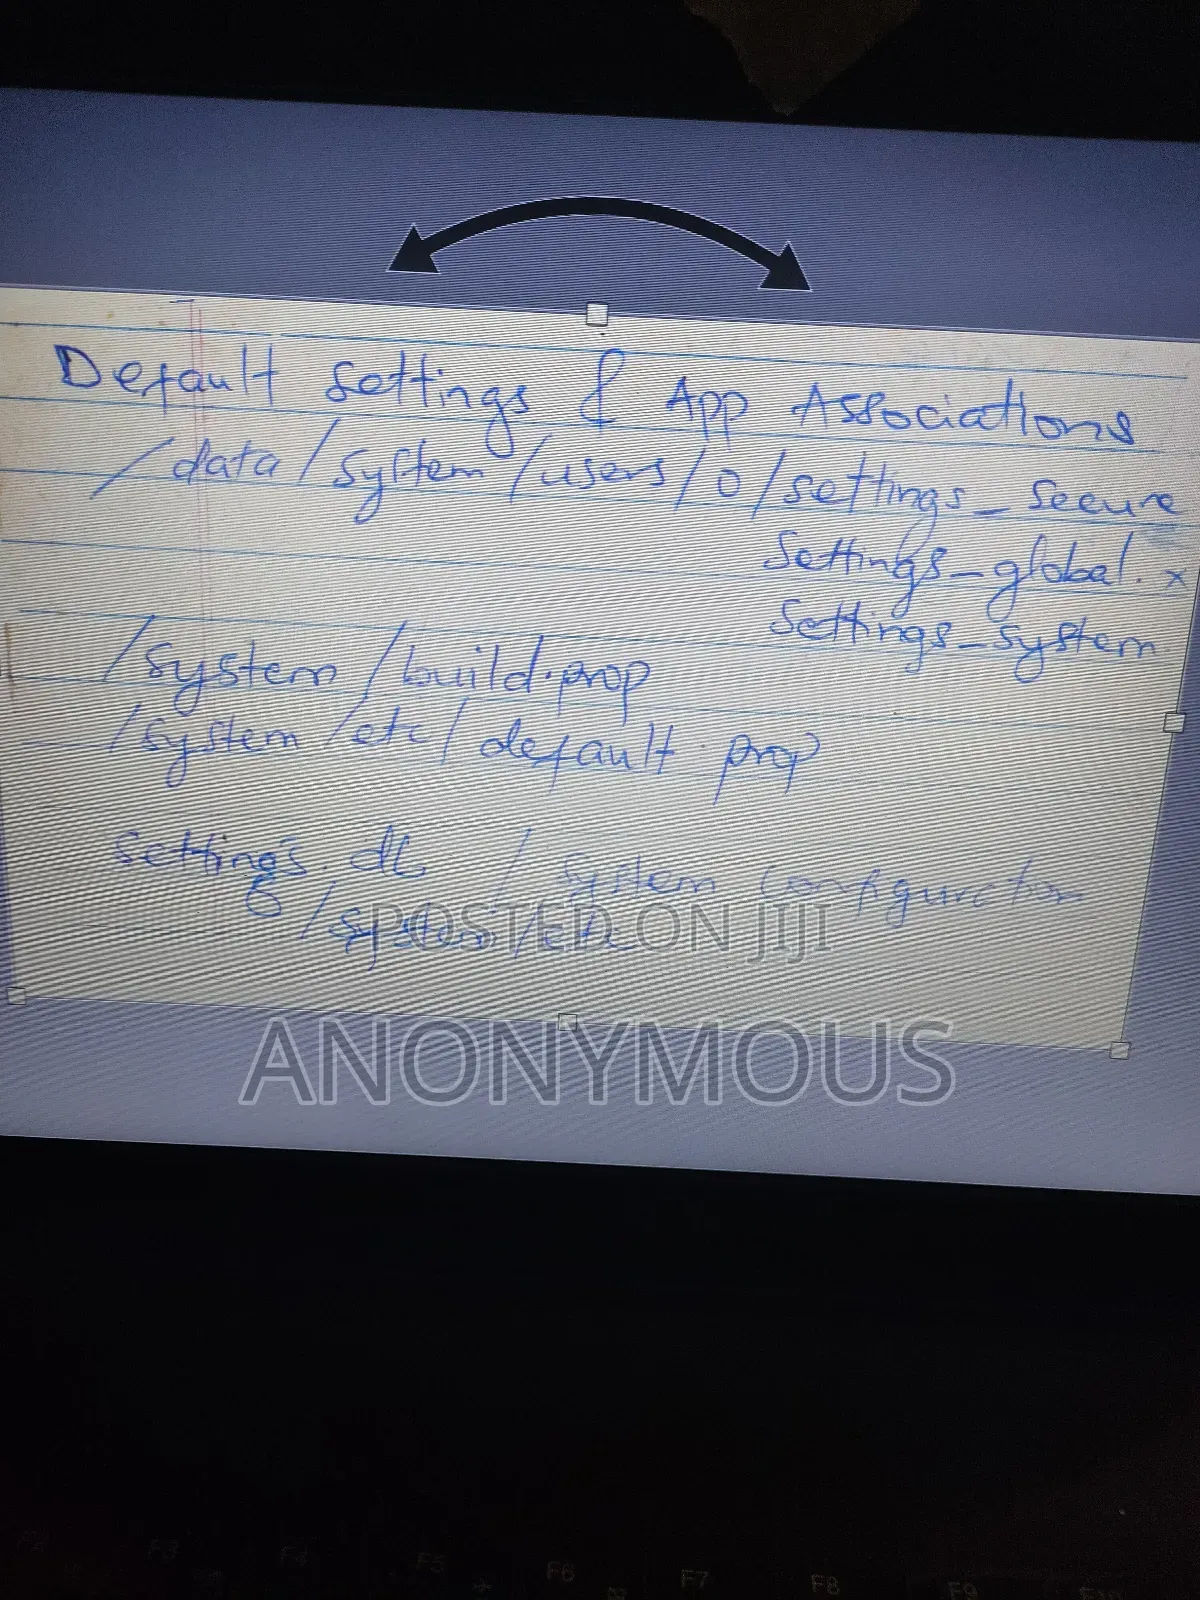 Default Settings & App Associations
/data/system/users/0/settings_secure
Settings_global.x
Settings_system
/system/build.prop
/system/etc/default.prop
settings.db / System configuration
/system/etc
POSTED ON JIJI
ANONYMOUS
F3
F4
F5
F6
F7
F8
F9